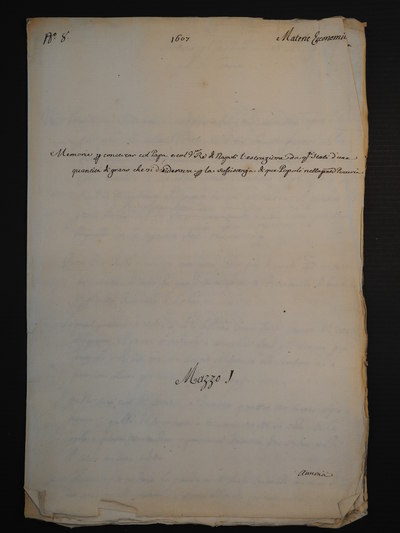 N.º 8 1607 Materie Economic
Memorie p concertar col Papa e col V. Re di Napoli l'estrazione da q.li Stati d'una
quantità di grano che si desidera p la sussistenza di que Popoli nella Penuria
Mazzo I
annona